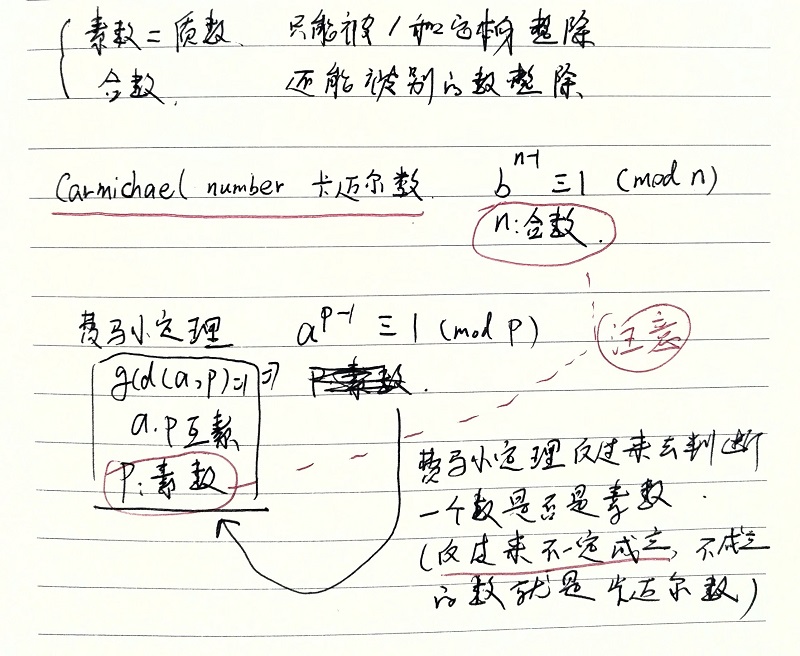 素数=质数. 只能被1和它本身整除
合数. 还能被别的数整除
Carmichael number 卡迈尔数. b^{n-1} ≡ 1 (mod n)
n:合数.
费马小定理 a^{p-1} ≡ 1 (mod p)
注意
gcd(a,p)=1 ⇒
a.p互素
P:素数
费马小定理反过来去判断
一个数是否是素数.
(反过来不一定成立, 不成立
的数就是卡迈尔数)